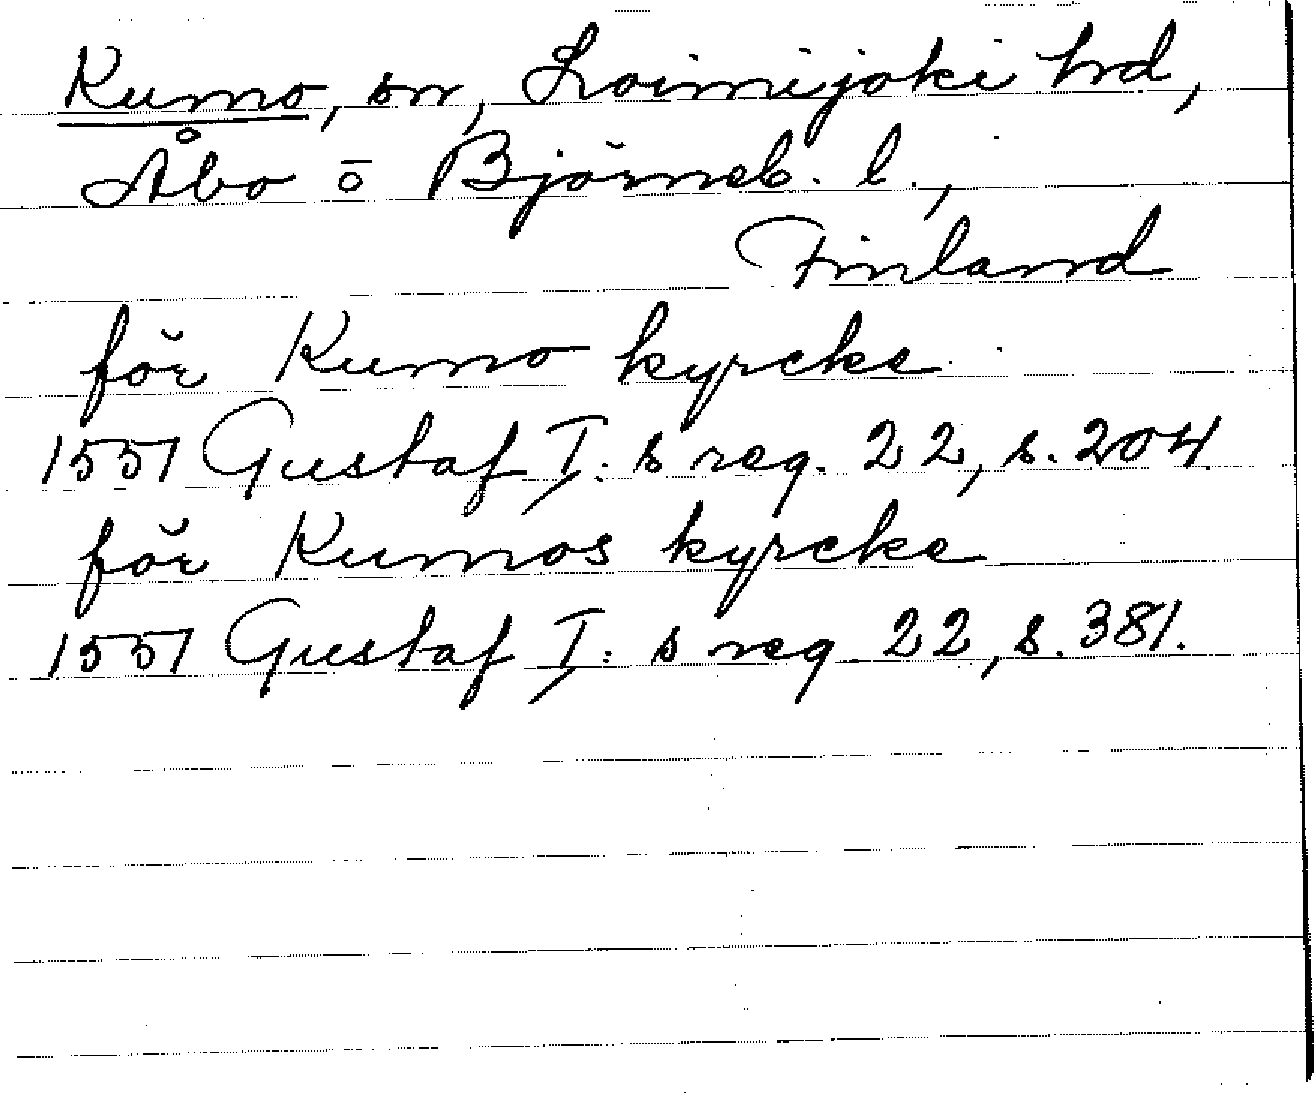 Kumo, sn, Loimijoki hd,
Åbo o Björneb. l.,
Finland
för Kumo kyrcke
1551 Gustaf I:s reg. 22, s. 204.
för Kumos kyrcke
1551 Gustaf I:s reg 22, s. 381.